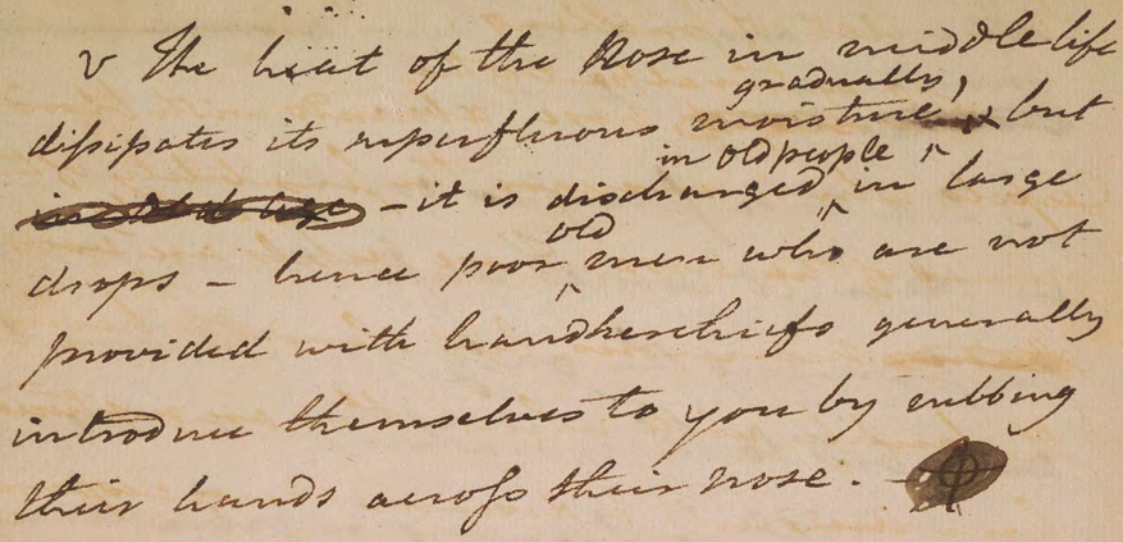 v The heat of the Nose in middle life
gradually,
dissipates its superfluous moisture, but
in old people
in old age - it is discharged in large
old
drops - hence poor men who are not
provided with handkerchiefs generally
introduce themselves to you by rubbing
their hands across their nose. -